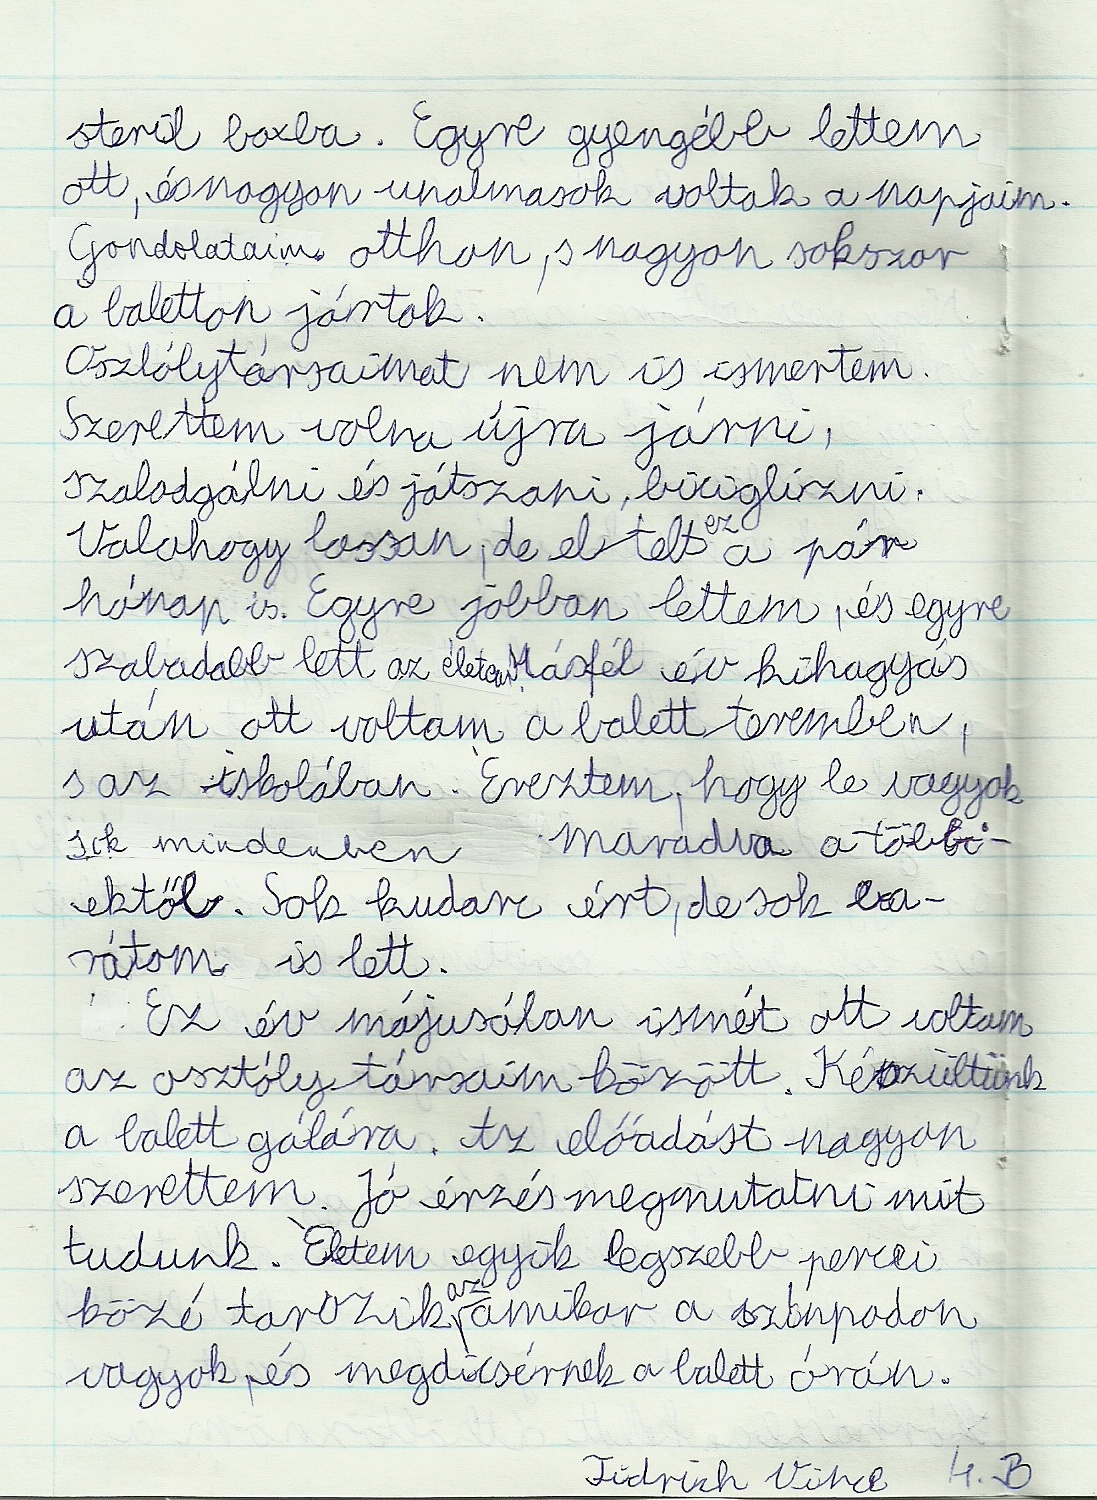 steril boxba. Egyre gyengébb lettem
ott, és nagyon unalmasok voltak a napjaim.
Gondolataim otthon, s nagyon sokszor
a baletton jártok.
Oszlólytársaimat nem is ismertem.
Szerettem volna újra járni,
szaladgálni és játszani, biciglizni.
Valahogy lassan, de el telt ez a pár
hónap is. Egyre jobban lettem, és egyre
szabadabb lett az életem. Másfél év kihagyás
után ott voltam a balett teremben,
s az iskolában. Éreztem, hogy le vagyok
mindenben maradva a többi-
ektől. Sok kudarc ért, de sok ba-
rátom is lett.
Ez év májusában ismét ott voltam
az osztály társaim között. Készültünk
a balett gálára. Az előadást nagyon
szerettem. Jó érzés megmutatni mit
tudunk. Életem egyik legszebb percei
közé tarozik az, amikor a színpadon
vagyok, és megdicsérnek a balett órán.
4. B